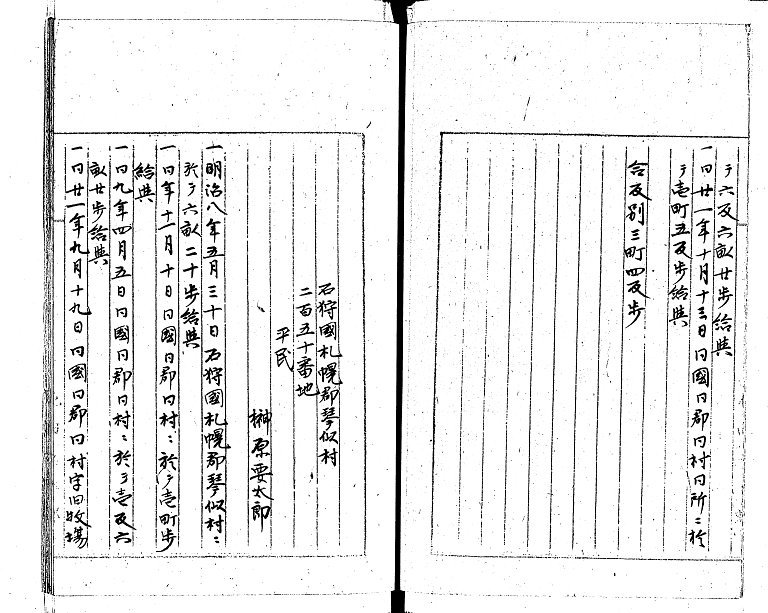 テ六反六畝廿歩給與
一同廿一年十月十三日同國同郡同村同所ニ於
テ壱町五反歩給與
合反別三町四反歩
石狩國札幌郡琴似村
二百五十番地
平民
榊原要太郎
一明治八年五月三十日石狩國札幌郡琴似村ニ
於テ六畝二十歩給與
一同年十一月十日同國同郡同村ニ於テ壱町歩
給與
一同九年四月五日同國同郡同村ニ於テ壱反六
畝廿歩給與
一同廿一年九月十九日同國同郡同村字旧牧場